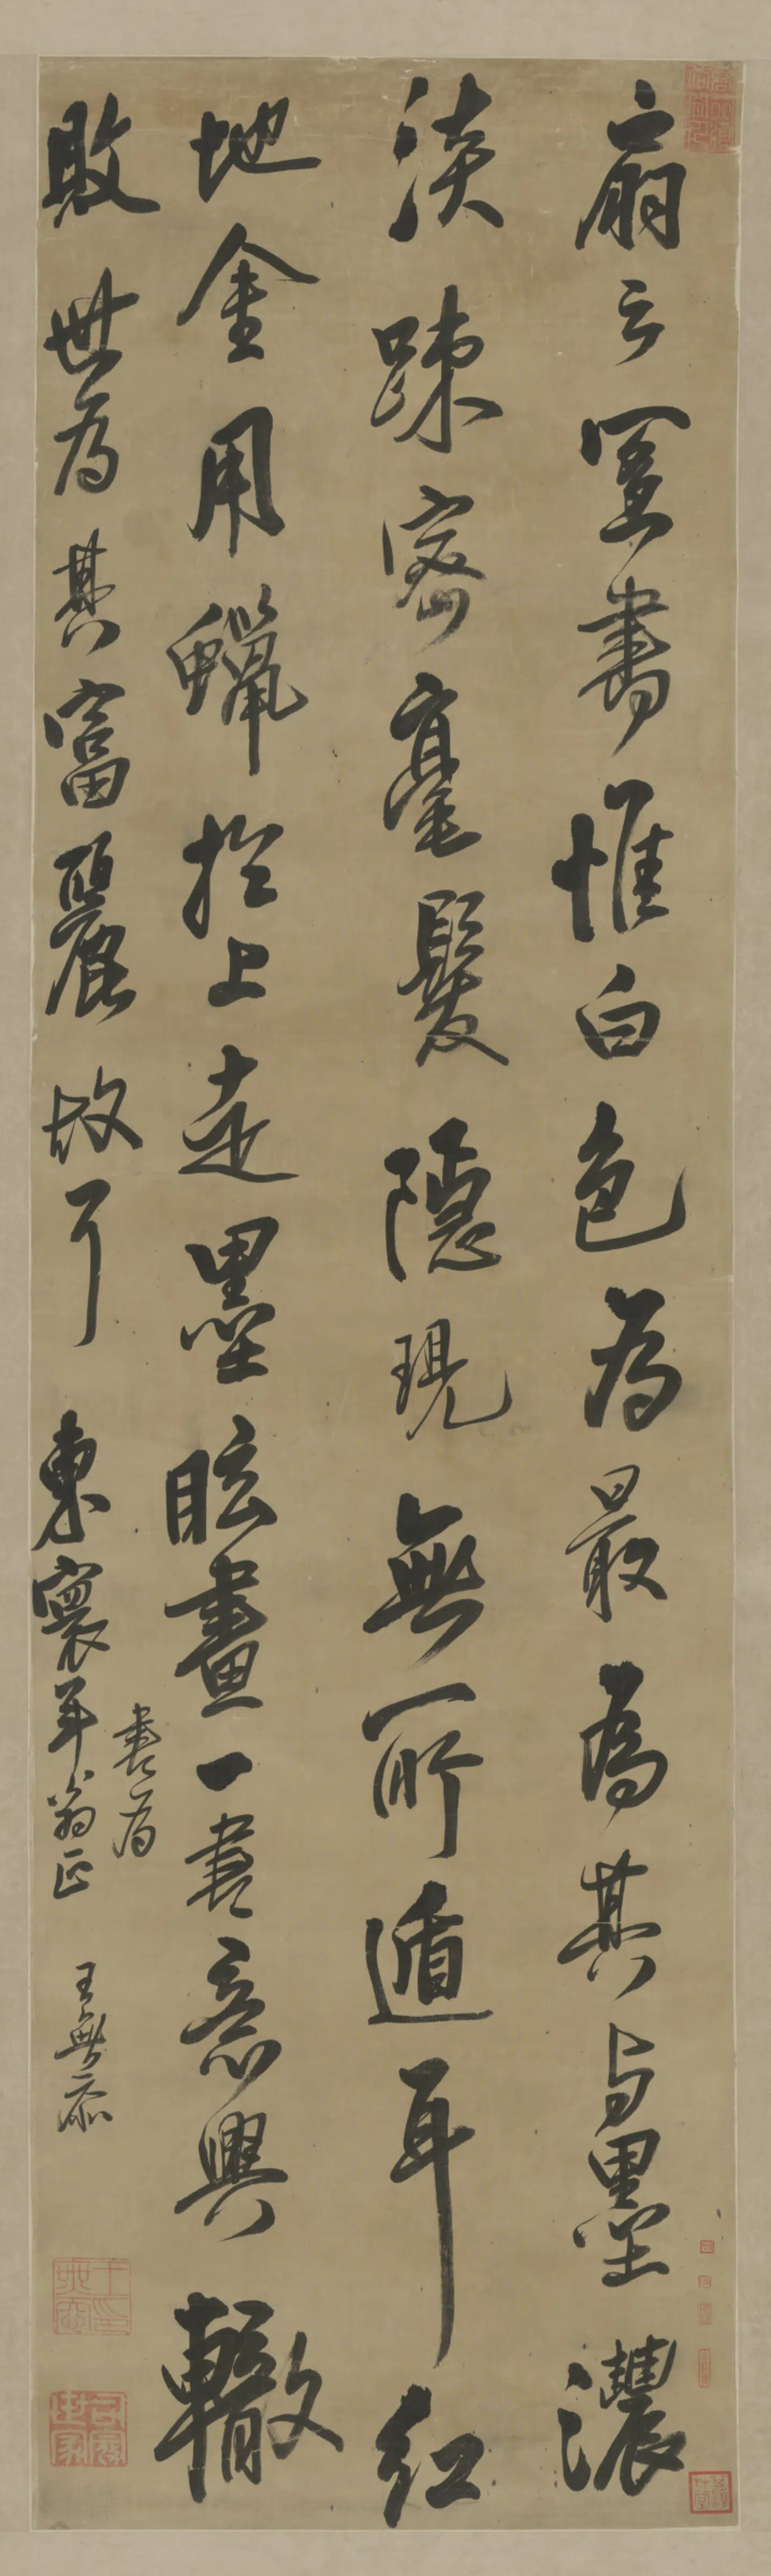 扇之置書惟白色為最為其与墨濃
淡踈密毫髮隱現無所遁耳紅
地金用蠟扵上走墨眩畫一書意興轍
敗世為其富麗故耳
東寰年翁正
書為
王無忝